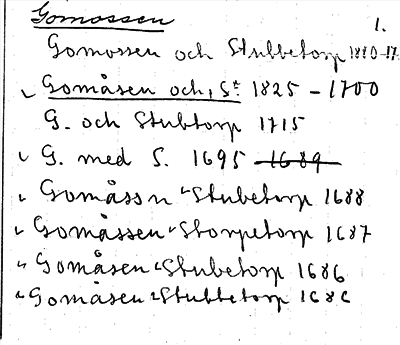 Gomossen 1.
Gomossen och Stubbetorp 1810-17
Gomåsen och, St 1825 - 1700
G. och Stubtorp 1715
G. med S. 1695 1689
Gomåssn " Stubetorp 1688
Gomåssen " Storpetorp 1687
" Gomåsen " Stubetorp 1686
" Gomåsen " Stubbetorp 1686